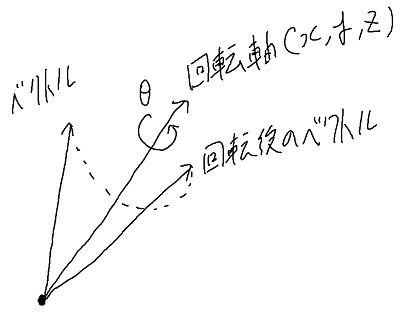 ベクトル
θ
回転軸(x,y,z)
回転後のベクトル